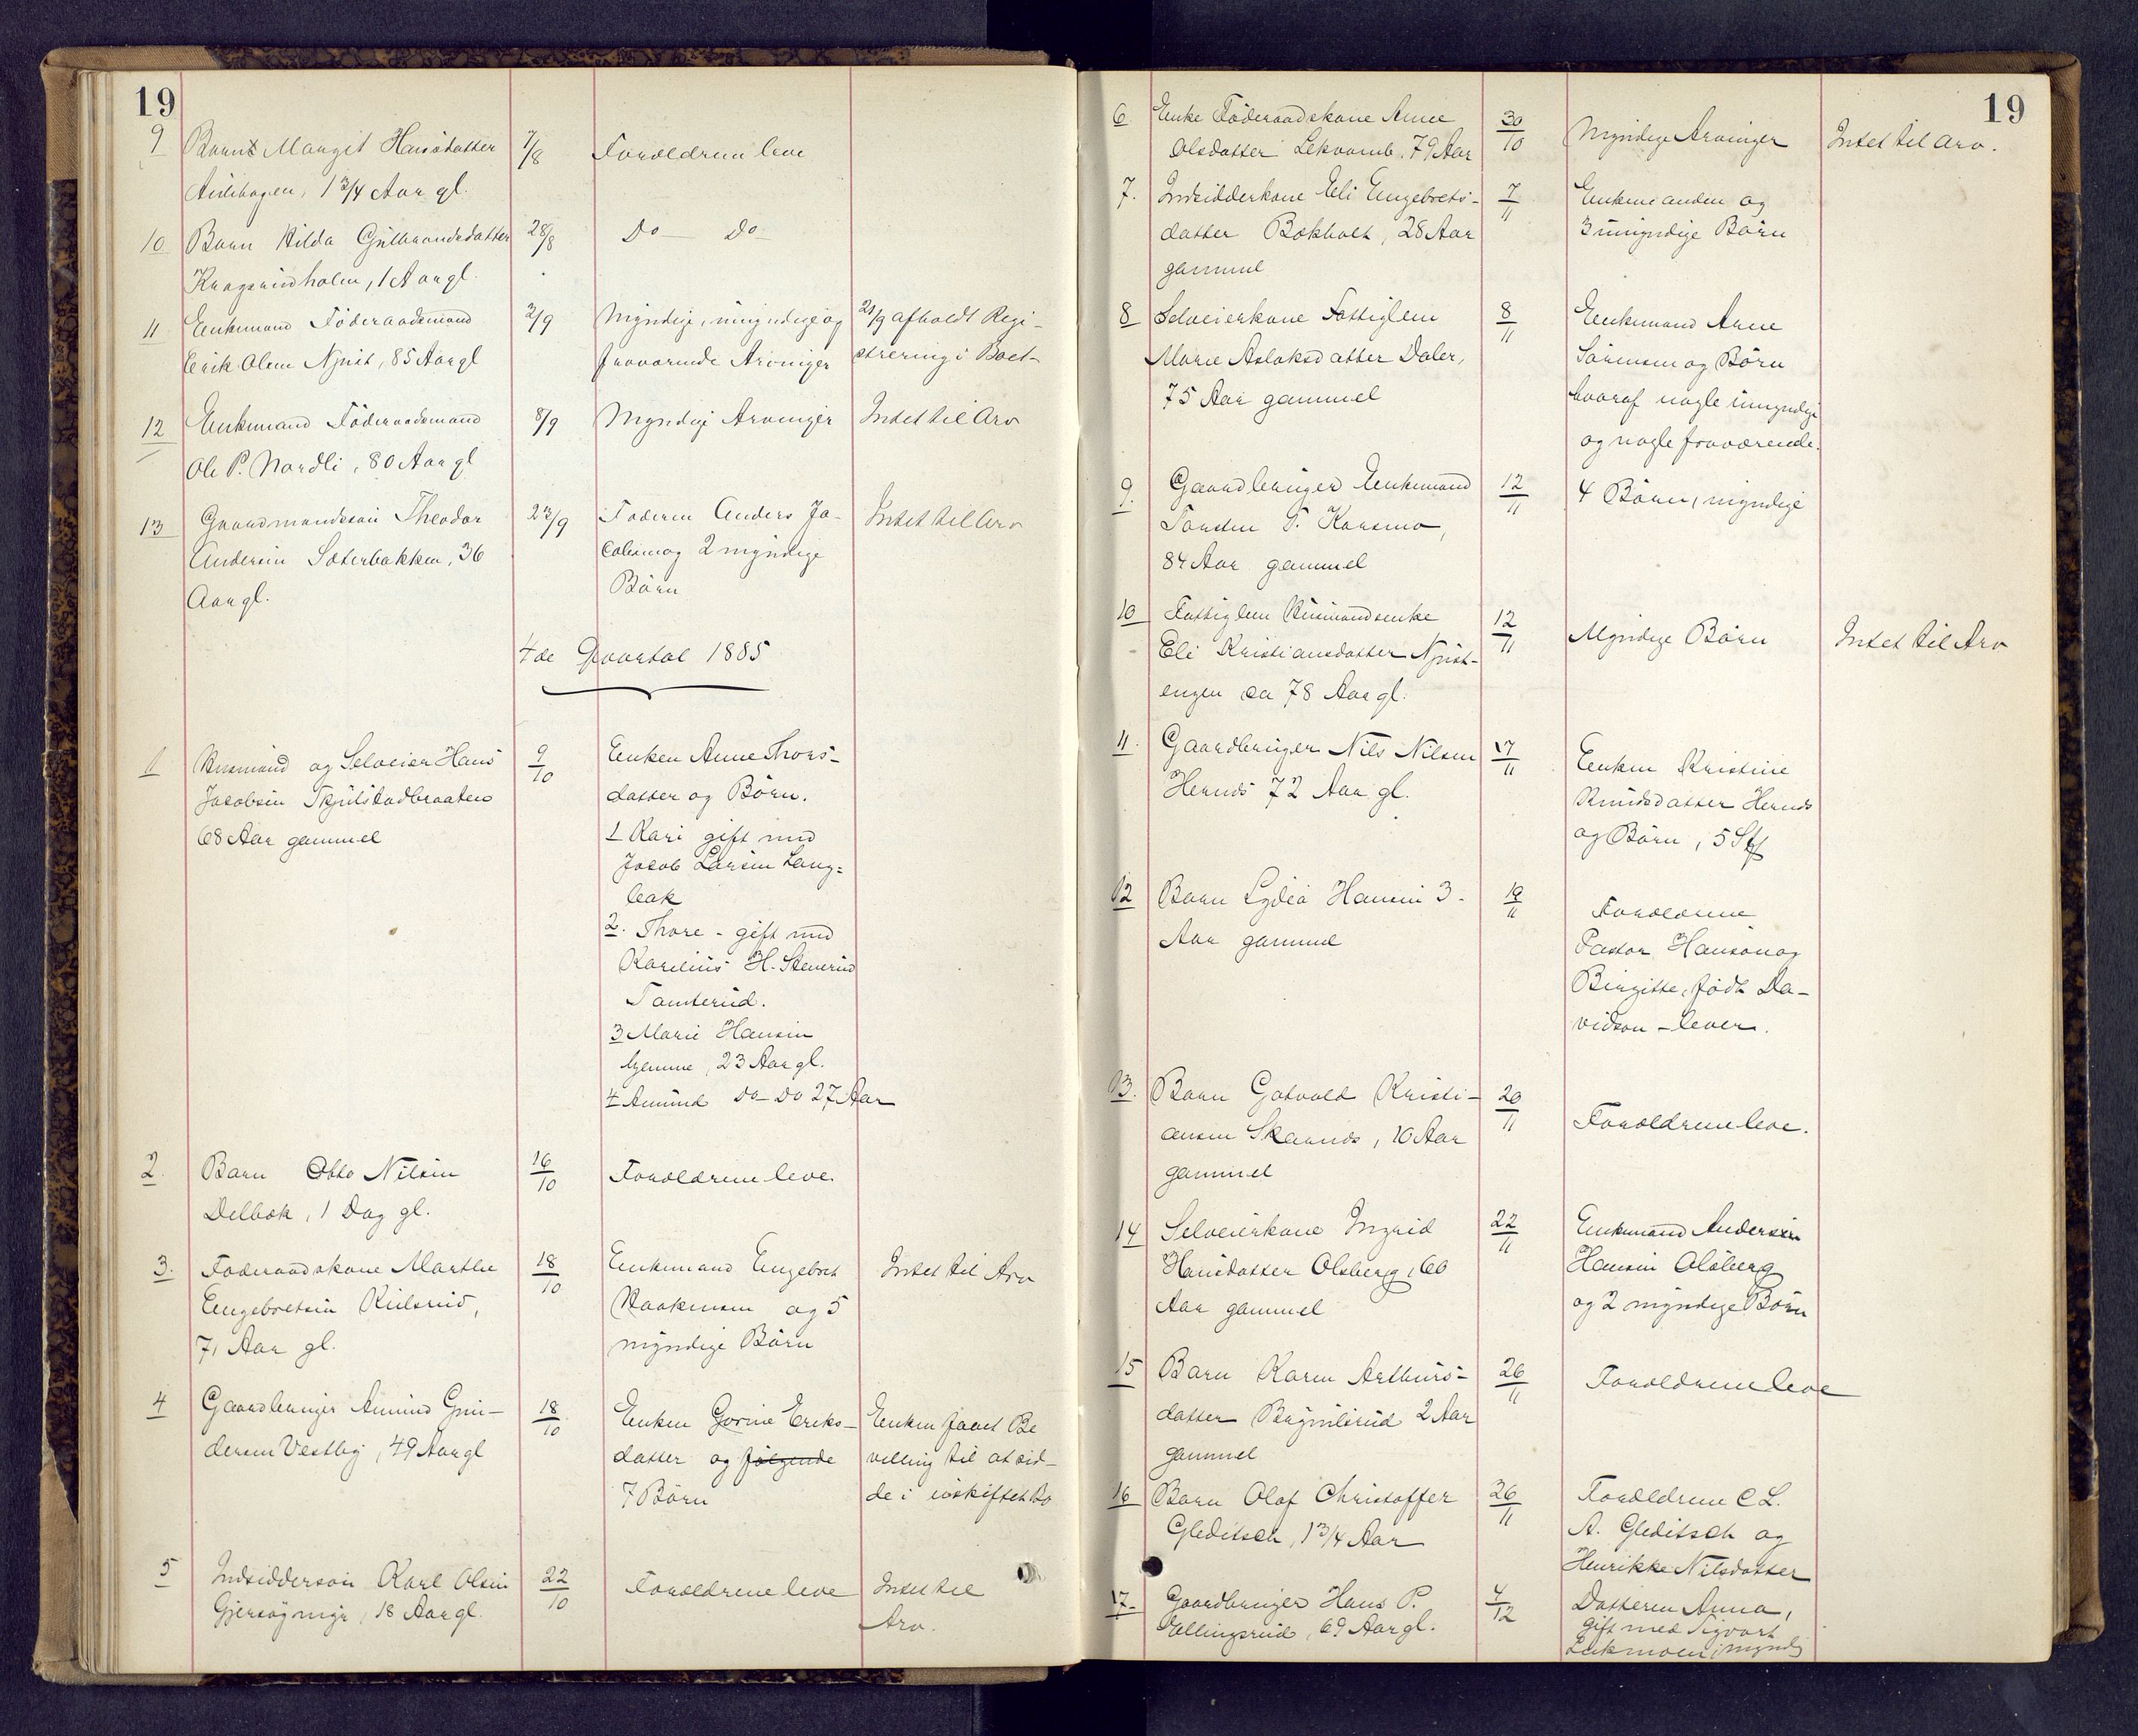 19
9 Barnet Margit Hansdatter 7/8 Forældrene leve
1 3/4 Aar gl.
10 Barn Hilda Gulbrandsdatter 28/8 Do — Do —
Kragsrudholen, 1 Aar gl.
11 Enkemand Föderaadsmand 2/9 Myndige, umyndige og 21/9 afholdt Regi-
Erik Olsen Njust, 85 Aar gl fraværende Arvinger strering i Boet
12 Enkemand Föderaadsmand 8/9 Myndige Arvinger Intet til Arv
Ole P. Nordli, 80 Aar gl
13 Gaardmandssön Theodor 23/9 Faderen Anders Ja- Intet til Arv
Andersen Sæterbakken, 36 cobsen og 2 myndige
Aar gl. Börn
4de Qvartal 1885
1 Husmand og Selveier Hans 9/10 Enken Anne Thors-
Jacobsen Skjulstadbraaten datter og Börn.
68 Aar gammel 1 Kari gift med
Jacob Larsen Lang-
bak
2. Thore - gift med
Karelius H. Stenerud
Tamterud.
3 Marie Hansen
hjemme, 23 Aar gl.
4 Amund Do Do 27 Aar
2. Barn Otto Nilsen 16/10 Forældrene leve.
Delbæk, 1 Dag gl.
3. Föderaadskone Marthe 18/10 Enkemand Engebret Intet til Arv
Engebretsen Kulsrud, Haakensen og 5
71 Aar gl. myndige Börn
4 Gaardbruger Amund Gun- 18/10 Enken Gorine Eriks- Enken faaet Be
dersen Vestby, 49 Aar gl datter og følgende villing til at sid-
7 Börn de i uskiftet Bo
5 Indsiddersön Karl Olsen 22/10 Forældrene leve Intet til
Gjersöymyr, 18 Aar gl. Arv.
19
6 Enke Föderaadskone Anne 30/10 Myndige Arvinger Intet til Arv.
Olsdatter Lekvamb. 79 Aar
7. Indsidderkone Eli Engebrets- 7/11 Enkemanden og
datter Bokholt, 28 Aar 3 umyndige Börn
gammel
8 Selveierkone Fattiglem 8/11 Enkemand Arne
Marie Aslaksdatter Daler, Sörensen og Börn
75 Aar gammel hvoraf nogle umyndige
og nogle fraværende.
9. Gaardbruger Enkemand 12/11 4 Börn, myndige
Torsten T. Korsmo,
84 Aar gammel
10 Fattiglem Husmandsenke 12/11 Myndige Börn Intet til Arv
Eli Kristiansdatter Njust-
engen ca 78 Aar gl.
11. Gaardbruger Nils Nilsen 17/11 Enken Kristine
Hernes 72 Aar gl. Knudsdatter Hernes
og Börn, 5 Stk
12 Barn Lydia Hansen 3 - 19/11 Forældrene
Aar gammel Pastor Hanson og
Birgitte, født Da-
vidson - lever.
13. Barn Gotvold Kristi- 20/11 Forældrene leve.
ansen Skarnes, 10 Aar
gammel
14 Selveierkone Ingrid 22/11 Enkemand Andersen
Hansdatter Olsberg, 60 Hansen Olsberg
Aar gammel og 2 myndige Börn
15 Barn Karen Arthurs- 26/11 Forældrene leve
datter 2 Aar
gammel
16 Barn Olaf Christoffer 26/11 Forældrene C L.
Gleditsch, 1 3/4 Aar A. Gleditsch og
Henrikke Nilsdatter
17- Gaardbruger Hans P. 4/12 Datteren Anna,
Ellingsrud, 69 Aar gl. gift med Sigvart
myndig